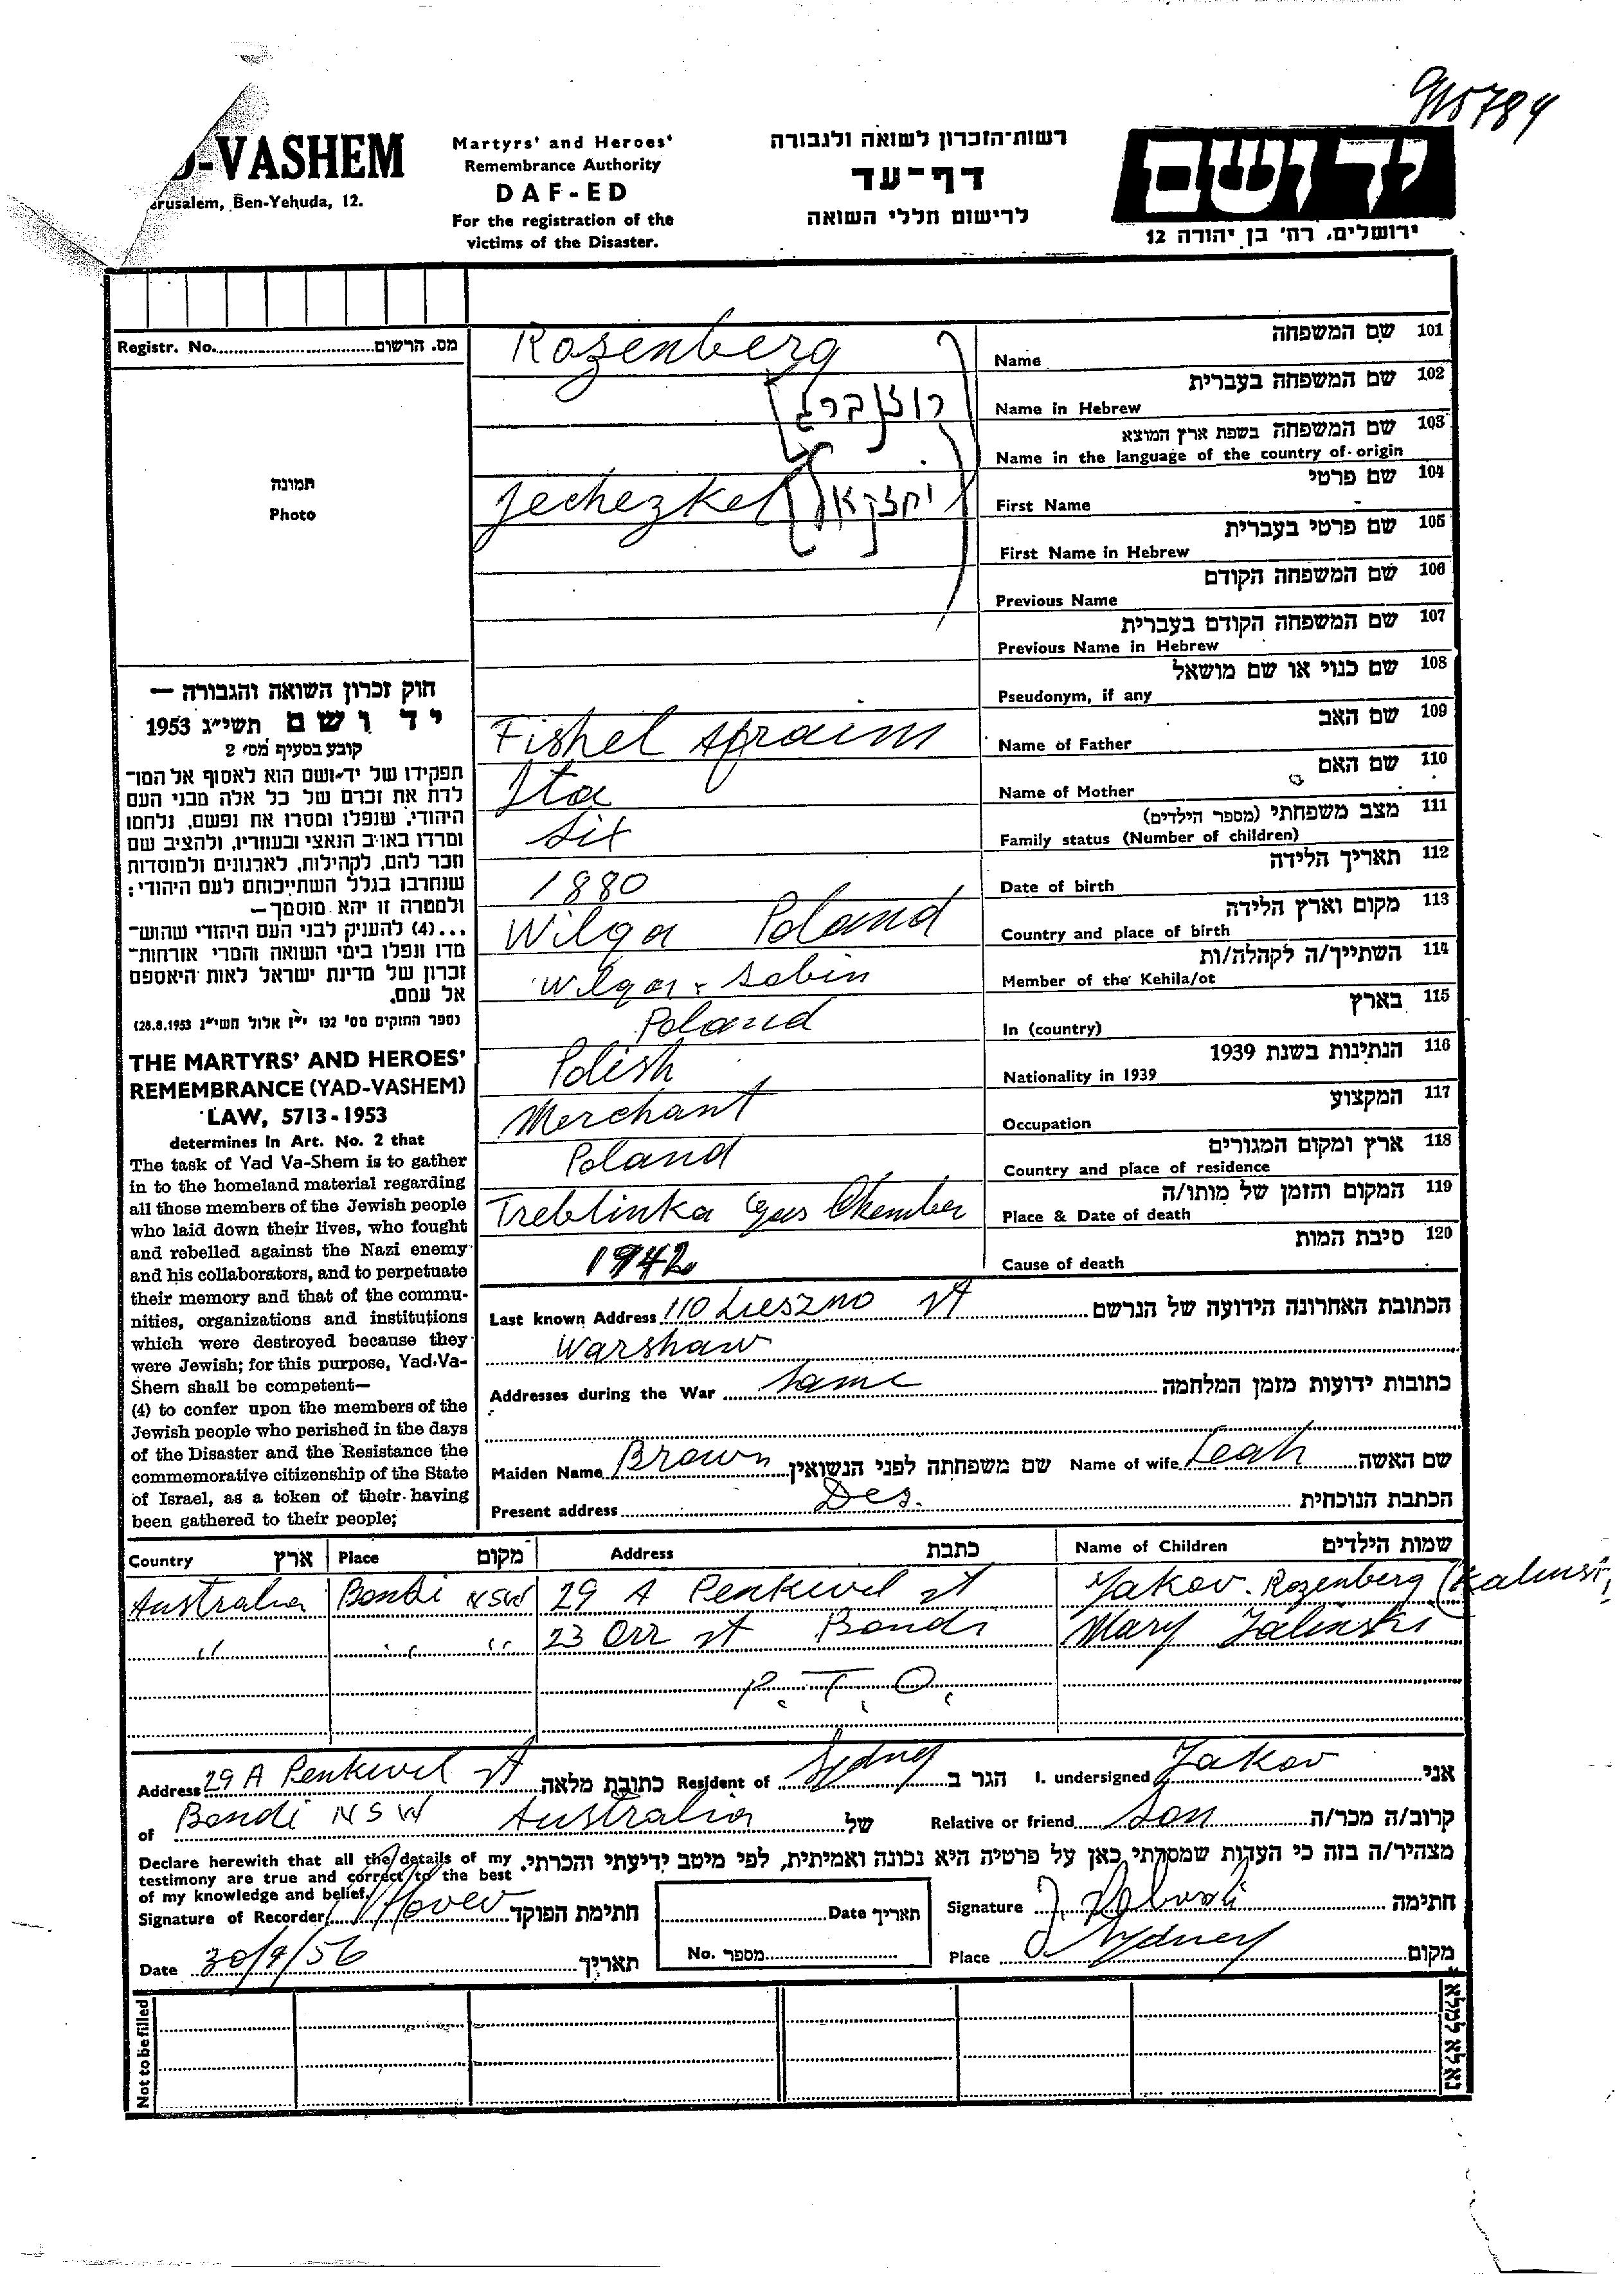 915784
-VASHEM
erusalem, Ben-Yehuda, 12.
Martyrs' and Heroes'
Remembrance Authority
DAF-ED
For the registration of the
victims of the Disaster.
רשות-הזכרון לשואה ולגבורה
דף-עד
לרישום חללי השואה
יד ושם
ירושלים, רח' בן יהודה 12
Registr. No. מס. הרשום
תמונה
Photo
101 שם המשפחה
Name Rozenberg
102 שם המשפחה בעברית
Name in Hebrew רוזנברג
103 שם המשפחה בשפת ארץ המוצא
Name in the language of the country of origin
104 שם פרטי
First Name Jechezkel יחזקאל
105 שם פרטי בעברית
First Name in Hebrew
106 שם המשפחה הקודם
Previous Name
107 שם המשפחה הקודם בעברית
Previous Name in Hebrew
108 שם כנוי או שם מושאל
Pseudonym, if any
109 שם האב
Name of Father Fishel Afraim
110 שם האם
Name of Mother Ita
111 מצב משפחתי (מספר הילדים)
Family status (Number of children) Six
112 תאריך הלידה
Date of birth 1880
113 מקום וארץ הלידה
Country and place of birth Wilga Poland
114 השתייך/ה לקהלה/ות
Member of the Kehila/ot Wilga Sobin
115 בארץ
In (country) Poland
116 הנתינות בשנת 1939
Nationality in 1939 Polish
117 המקצוע
Occupation Merchant
118 ארץ ומקום המגורים
Country and place of residence Poland
119 המקום והזמן של מותו/ה
Place & Date of death Treblinka Gas Chember
120 סיבת המות
Cause of death 1942
חוק זכרון השואה והגבורה —
יד ושם תשי"ג 1953
קובע בסעיף מס' 2
תפקידו של יד-ושם הוא לאסוף אל המו-
לדת את זכרם של כל אלה מבני העם
היהודי, שנפלו ומסרו את נפשם, נלחמו
ומרדו באויב הנאצי ובעוזריו, ולהציב שם
וזכר להם, לקהילות, לארגונים ולמוסדות
שנחרבו בגלל השתייכותם לעם היהודי;
ולמטרה זו יהא מוסמך—
...(4) להעניק לבני העם היהודי שהוש-
מדו ונפלו בימי השואה והמרי אזרחות-
זכרון של מדינת ישראל לאות היאספם
אל עמם.
(ספר החוקים מס' 132 י"ז אלול תשי"ג 28.8.1953)
THE MARTYRS' AND HEROES'
REMEMBRANCE (YAD-VASHEM)
LAW, 5713-1953
determines in Art. No. 2 that
The task of Yad Va-Shem is to gather
in to the homeland material regarding
all those members of the Jewish people
who laid down their lives, who fought
and rebelled against the Nazi enemy
and his collaborators, and to perpetuate
their memory and that of the commu-
nities, organizations and institutions
which were destroyed because they
were Jewish; for this purpose, Yad-Va-
Shem shall be competent—
(4) to confer upon the members of the
Jewish people who perished in the days
of the Disaster and the Resistance the
commemorative citizenship of the State
of Israel, as a token of their having
been gathered to their people;
Last known Address 110 Leszno St הכתובת האחרונה הידועה של הנרשם
Warshaw
Addresses during the War Same כתובות ידועות מזמן המלחמה
Maiden Name Brown שם משפחתה לפני הנשואין Name of wife Leah שם האשה
Present address Des. הכתבת הנוכחית
Country ארץ Place מקום Address כתבת Name of Children שמות הילדים
Australia Bondi NSW 29 A Penkivil St Jakov Rozenberg (Zalinski,
" " " 23 Orr St Bondi Mary Zalinski
P.T.O.
Address 29 A Penkivil St כתובת מלאה Resident of Sydney הגר ב I. undersigned Jakov אני
of Bondi NSW Australia של Relative or friend Son קרוב/ה מכר/ה
Declare herewith that all the details of my
testimony are true and correct to the best
of my knowledge and belief.
מצהיר/ה בזה כי העדות שמסרתי כאן על פרטיה היא נכונה ואמיתית, לפי מיטב ידיעתי והכרתי.
Signature of Recorder חתימת הפוקד
Date תאריך
No. מספר
Signature חתימה
Date 30/9/56 תאריך
Place Sydney מקום
Not to be filled
נא לא למלא